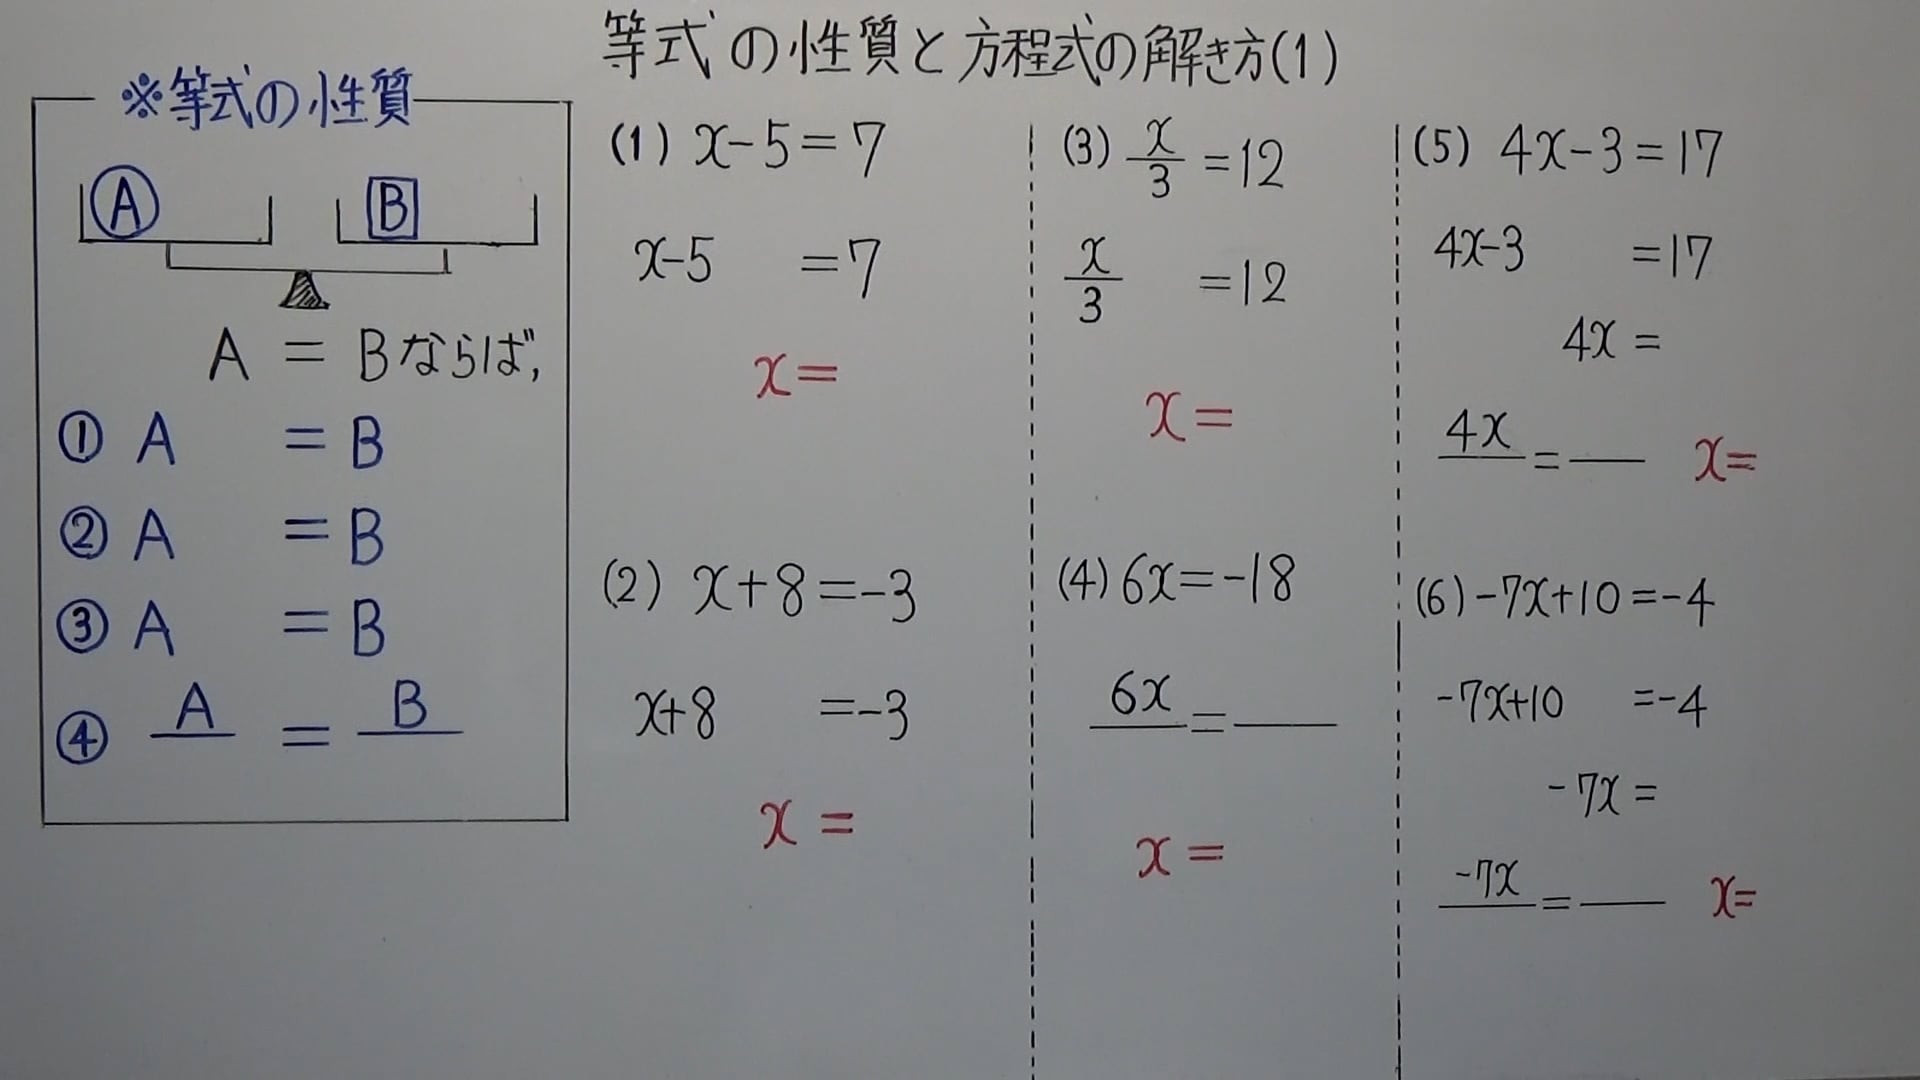 等式の性質と方程式の解き方(1)
※等式の性質
A B
A = Bならば,
① A = B
② A = B
③ A = B
④ A/ = B/
(1) x-5=7
x-5 =7
x=
(2) x+8=-3
x+8 =-3
x=
(3) x/3 =12
x/3 =12
x=
(4) 6x=-18
6x/ = /
x=
(5) 4x-3=17
4x-3 =17
4x=
4x/ = / x=
(6) -7x+10=-4
-7x+10 =-4
-7x=
-7x/ = / x=